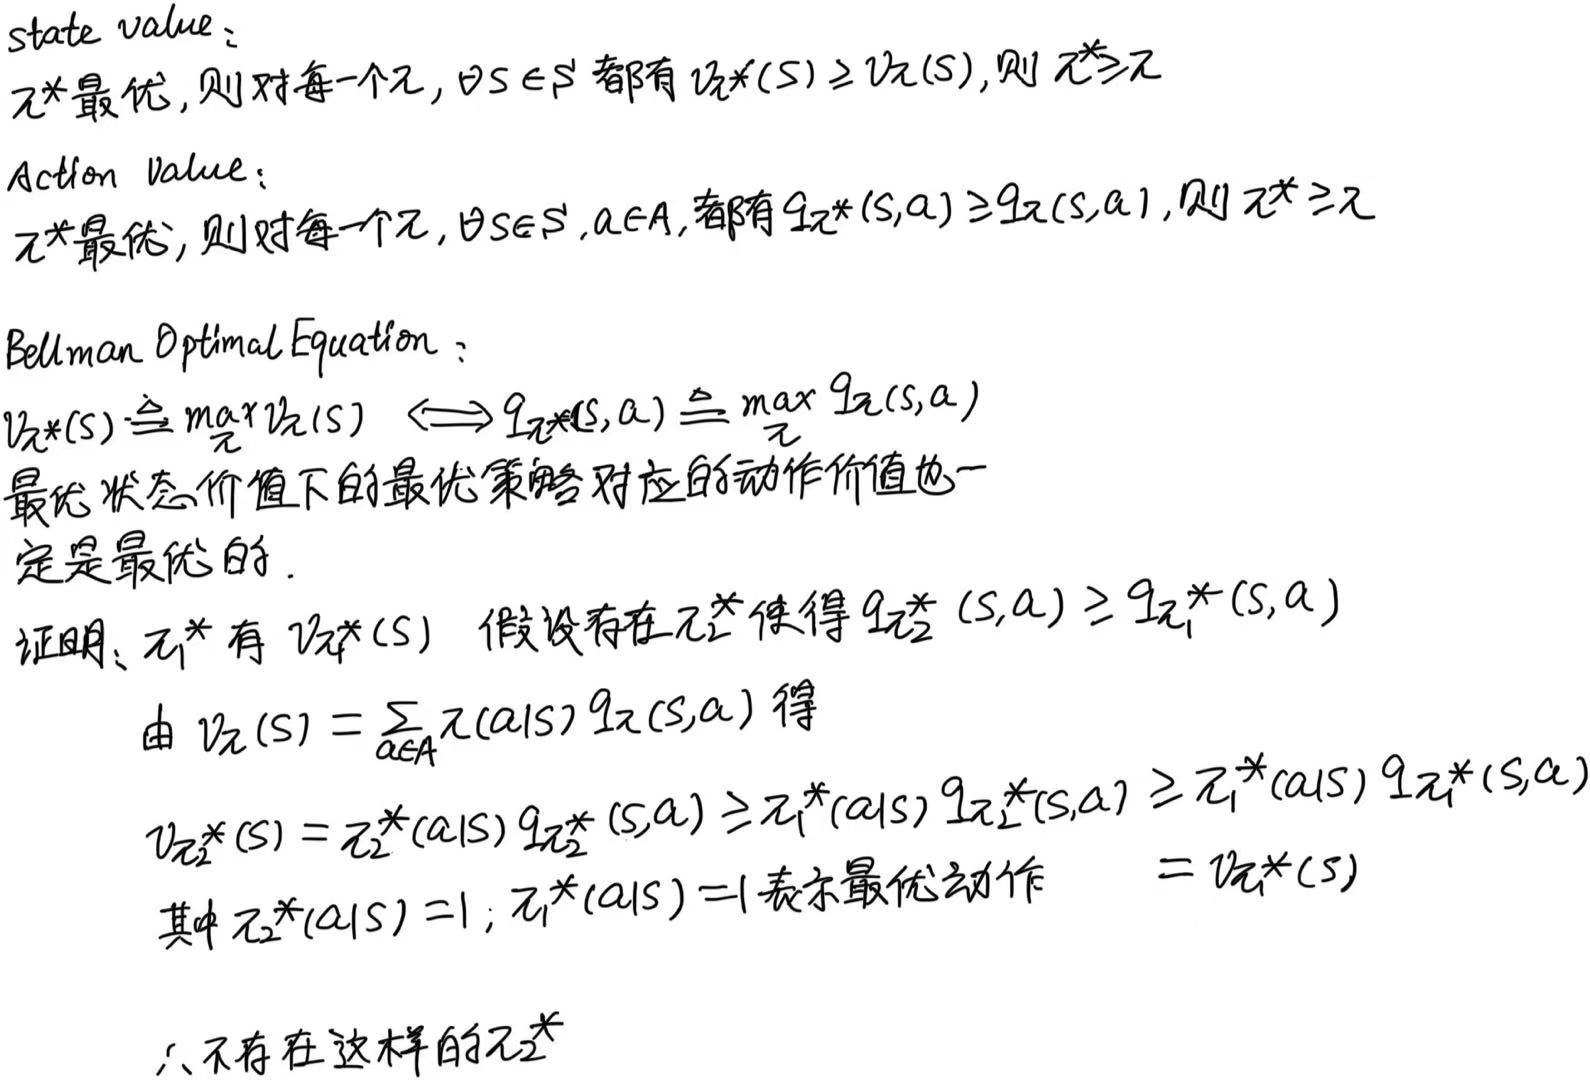 state value:
π*最优,则对每一个π,∀s∈S 都有 vπ*(s)≥vπ(s),则 π*≥π
Action Value:
π*最优,则对每一个π,∀s∈S,a∈A,都有 qπ*(s,a)≥qπ(s,a),则 π*≥π
Bellman Optimal Equation:
vπ*(s)≜max_π vπ(s) ⟺ qπ*(s,a)≜max_π qπ(s,a)
最优状态价值下的最优策略对应的动作价值也一
定是最优的.
证明: π₁* 有 vπ₁*(s) 假设存在π₂*使得 qπ₂*(s,a)≥qπ₁*(s,a)
由 vπ(s)=∑_{a∈A} π(a|s) qπ(s,a) 得
vπ₂*(s)=π₂*(a|s) qπ₂*(s,a)≥π₁*(a|s) qπ₂*(s,a)≥π₁*(a|s) qπ₁*(s,a)
=vπ₁*(s)
其中 π₂*(a|s)=1; π₁*(a|s)=1表示最优动作
∴不存在这样的π₂*